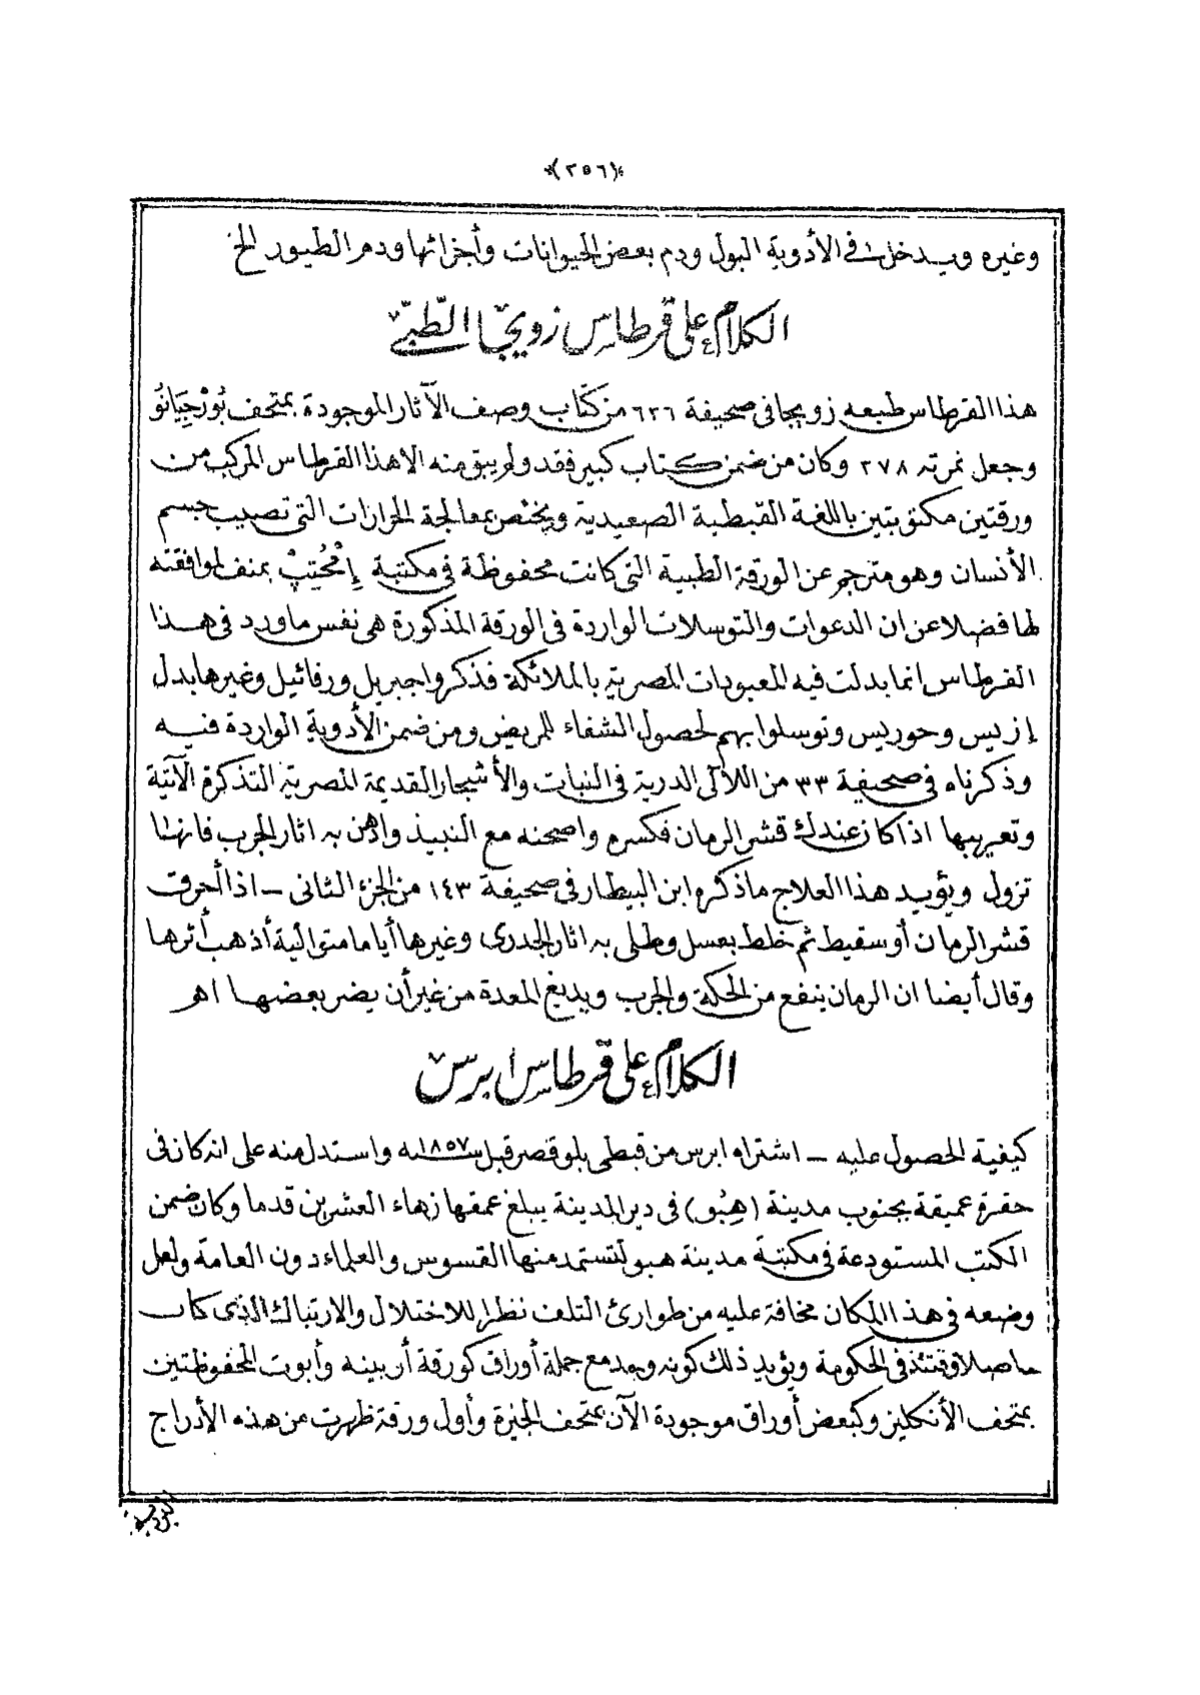 (٢٥٦)
وغيره ويدخل في الأدوية البول ودم بعض الحيوانات وأجزائها ودم الطيور الخ
الكلام على قرطاس زويجا الطّبّي
هذا القرطاس طبعه زويجا في صحيفة ٦٢٦ من كتاب وصف الآثار الموجودة بمتحف بُورْجِيَانُو
وجعل نمرته ٢٧٨ وكان من ضمن كتاب كبير فقد ولم يبق منه الا هذا القرطاس المركب من
ورقتين مكتوبتين باللغة القبطية الصعيدية ويختص بمعالجة الحزازات التى تصيب جسم
الأنسان وهو مترجم عن الورقة الطبية التى كانت محفوظة فى مكتبة إِمْحُتِبْ بمنف لموافقته
لها فضلا عن ان الدعوات والتوسلات الواردة فى الورقة المذكورة هى نفس ما ورد فى هذا
القرطاس انما بدلت فيه المعبودات المصرية بالملائكة فذكروا جبريل ورفائيل وغيرها بدل
إزيس وحوريس وتوسلوا بهم لحصول الشفاء للمريض ومن ضمن الأدوية الواردة فيه
وذكرناه فى صحيفة ٣٣ من اللآلى الدرية فى النبات والأشجار القديمة المصرية التذكرة الآتية
وتعريبها اذا كان عندك قشر الرمان فكسره واصحنه مع النبيذ وادهن به اثار الجرب فانها
تزول ويؤيد هذا العلاج ماذكره ابن البيطار فى صحيفة ١٤٣ من الجزء الثانى – اذا أحرقت
قشر الرمان أو سقيط ثم خلط بعسل وطلى به اثار الجدرى وغيرها أياما متوالية أذهب أثرها
وقال أيضا ان الرمان ينفع من الحكة والجرب ويدبغ المعدة من غير أن يضر بعضها اهـ
الكلام على قرطاس ابرس
كيفية الحصول عليه – اشتراه ابرس من قبطى بلوقصر قبل سنة ١٨٥٧ واستدل منه على انه كان فى
حفرة عميقة بجنوب مدينة (هِبُو) فى دير المدينة يبلغ عمقها زهاء العشرين قدما وكان ضمن
الكتب المستودعة فى مكتبة مدينة هبو لتستمد منها القسوس والعلماء دون العامة ولعل
وضعه فى هذا المكان مخافة عليه من طوارئ التلف نظرا للاختلال والارتباك الذى كان
حاصلا وقتئذ فى الحكومة ويؤيد ذلك كونه وجد مع جملة أوراق كورقة أربينه وأبوت المحفوظتين
بمتحف الأنكليز وكبعض أوراق موجودة الآن بمتحف الجيزة وأول ورقة ظهرت من هذه الأدراج